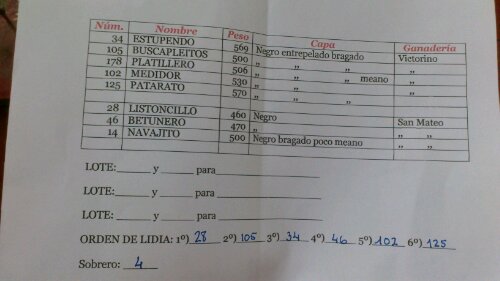 Núm. Nombre Peso Capa Ganadería
34 ESTUPENDO 569 Negro entrepelado bragado Victorino
105 BUSCAPLEITOS 500 „ „ „ „
178 PLATILLERO 506 „ „ „ meano „
102 MEDIDOR 530 „ „ „ „
125 PATARATO 570 „ „ „ „
28 LISTONCILLO 460 Negro San Mateo
46 BETUNERO 470 „ „ „
14 NAVAJITO 500 Negro bragado poco meano „ „
LOTE:______ y ______ para ____________________
LOTE:______ y ______ para ____________________
LOTE:______ y ______ para ____________________
ORDEN DE LIDIA: 1º) 28 2º) 105 3º) 34 4º) 46 5º) 102 6º) 125
Sobrero: 4